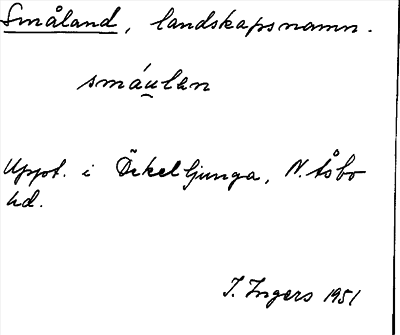 Småland, landskapsnamn.
småu̯lan
Uppt. i Örkelljunga, N. Åsbo
hd.
I. Ingers 1951